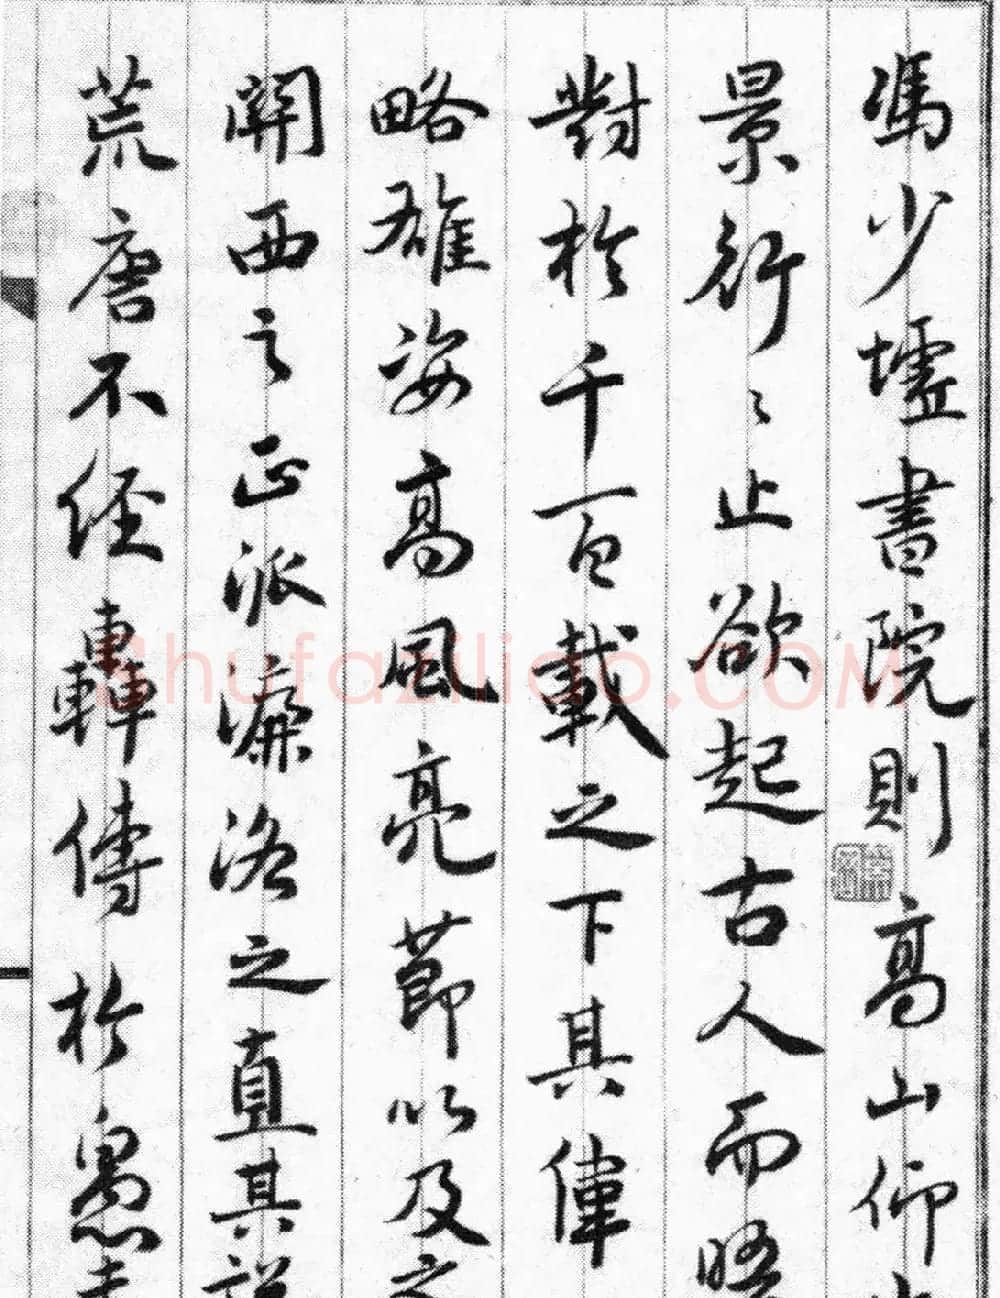 馮少墟書院則高山仰
景行〻止欲起古人而晤
對於千百載之下其偉
略雄姿高風亮節以及之
關西之正派濂洛之直其説
荒唐不經轟傳於愚夫
Shufaziliao.COM